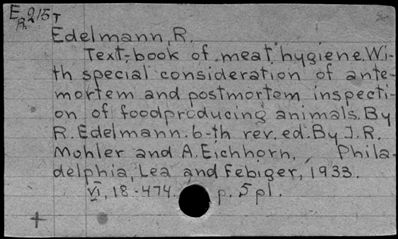 E 215 T
Edelmann, R.
Text-book of meat hygiene. Wi-
th special consideration of ante-
mortem and postmortem inspecti-
on of foodproducing animals. By
R. Edelmann. 6-th rev. ed. By J. R.
Mohler and A. Eichhorn, Phila-
delphia, Lea and Febiger, 1933.
VI, 18-474 p. 5 pl.